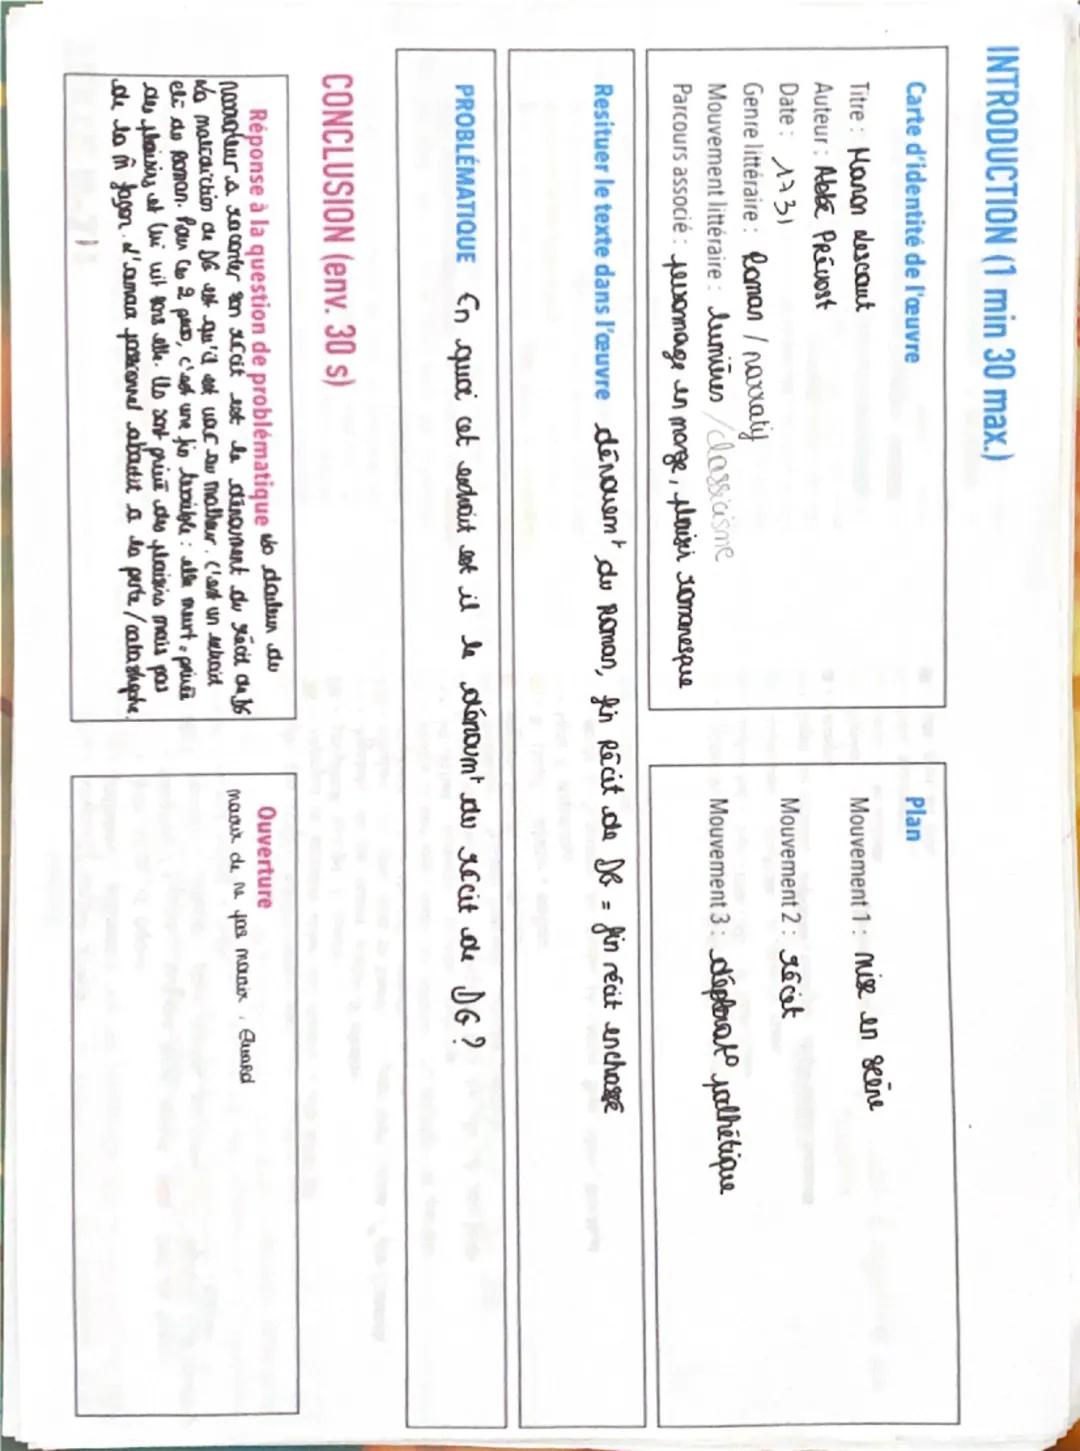 INTRODUCTION (1 min 30 max.)
Carte d'identité de l'œuvre
Titre : Manon Lescaut
Auteur : Abbé Prévost
Date : 1731
Genre littéraire : Roman / narratif
Mouvement littéraire : Lumières / classicisme
Parcours associé : personnage en marge, plaisir romanesque
Plan
Mouvement 1 : mise en scène
Mouvement 2 : récit
Mouvement 3 : déplorat° pathétique
Resituer le texte dans l'œuvre dénouemt du Roman, fin Récit de DG = fin récit enchassé
PROBLÉMATIQUE En quoi cet extrait est il le dénoumt du récit de DG ?
CONCLUSION (env. 30 s)
Réponse à la question de problématique la douleur du
narrateur a raconter son récit est le dénoument du récit de DG
La malédiction de DG est qu'il est voué au malheur. C'est un extrait
clé du roman. Pour ces 2 pers, c'est une fin terrible : elle meurt, privée
des plaisirs et lui vit sans elle. Ils sont privé des plaisirs mais pas
de la m̂ façon. L'amour passionnel aboutit a la perte / catastrophe.
Ouverture
mourir de ne pas mourir, Eluard